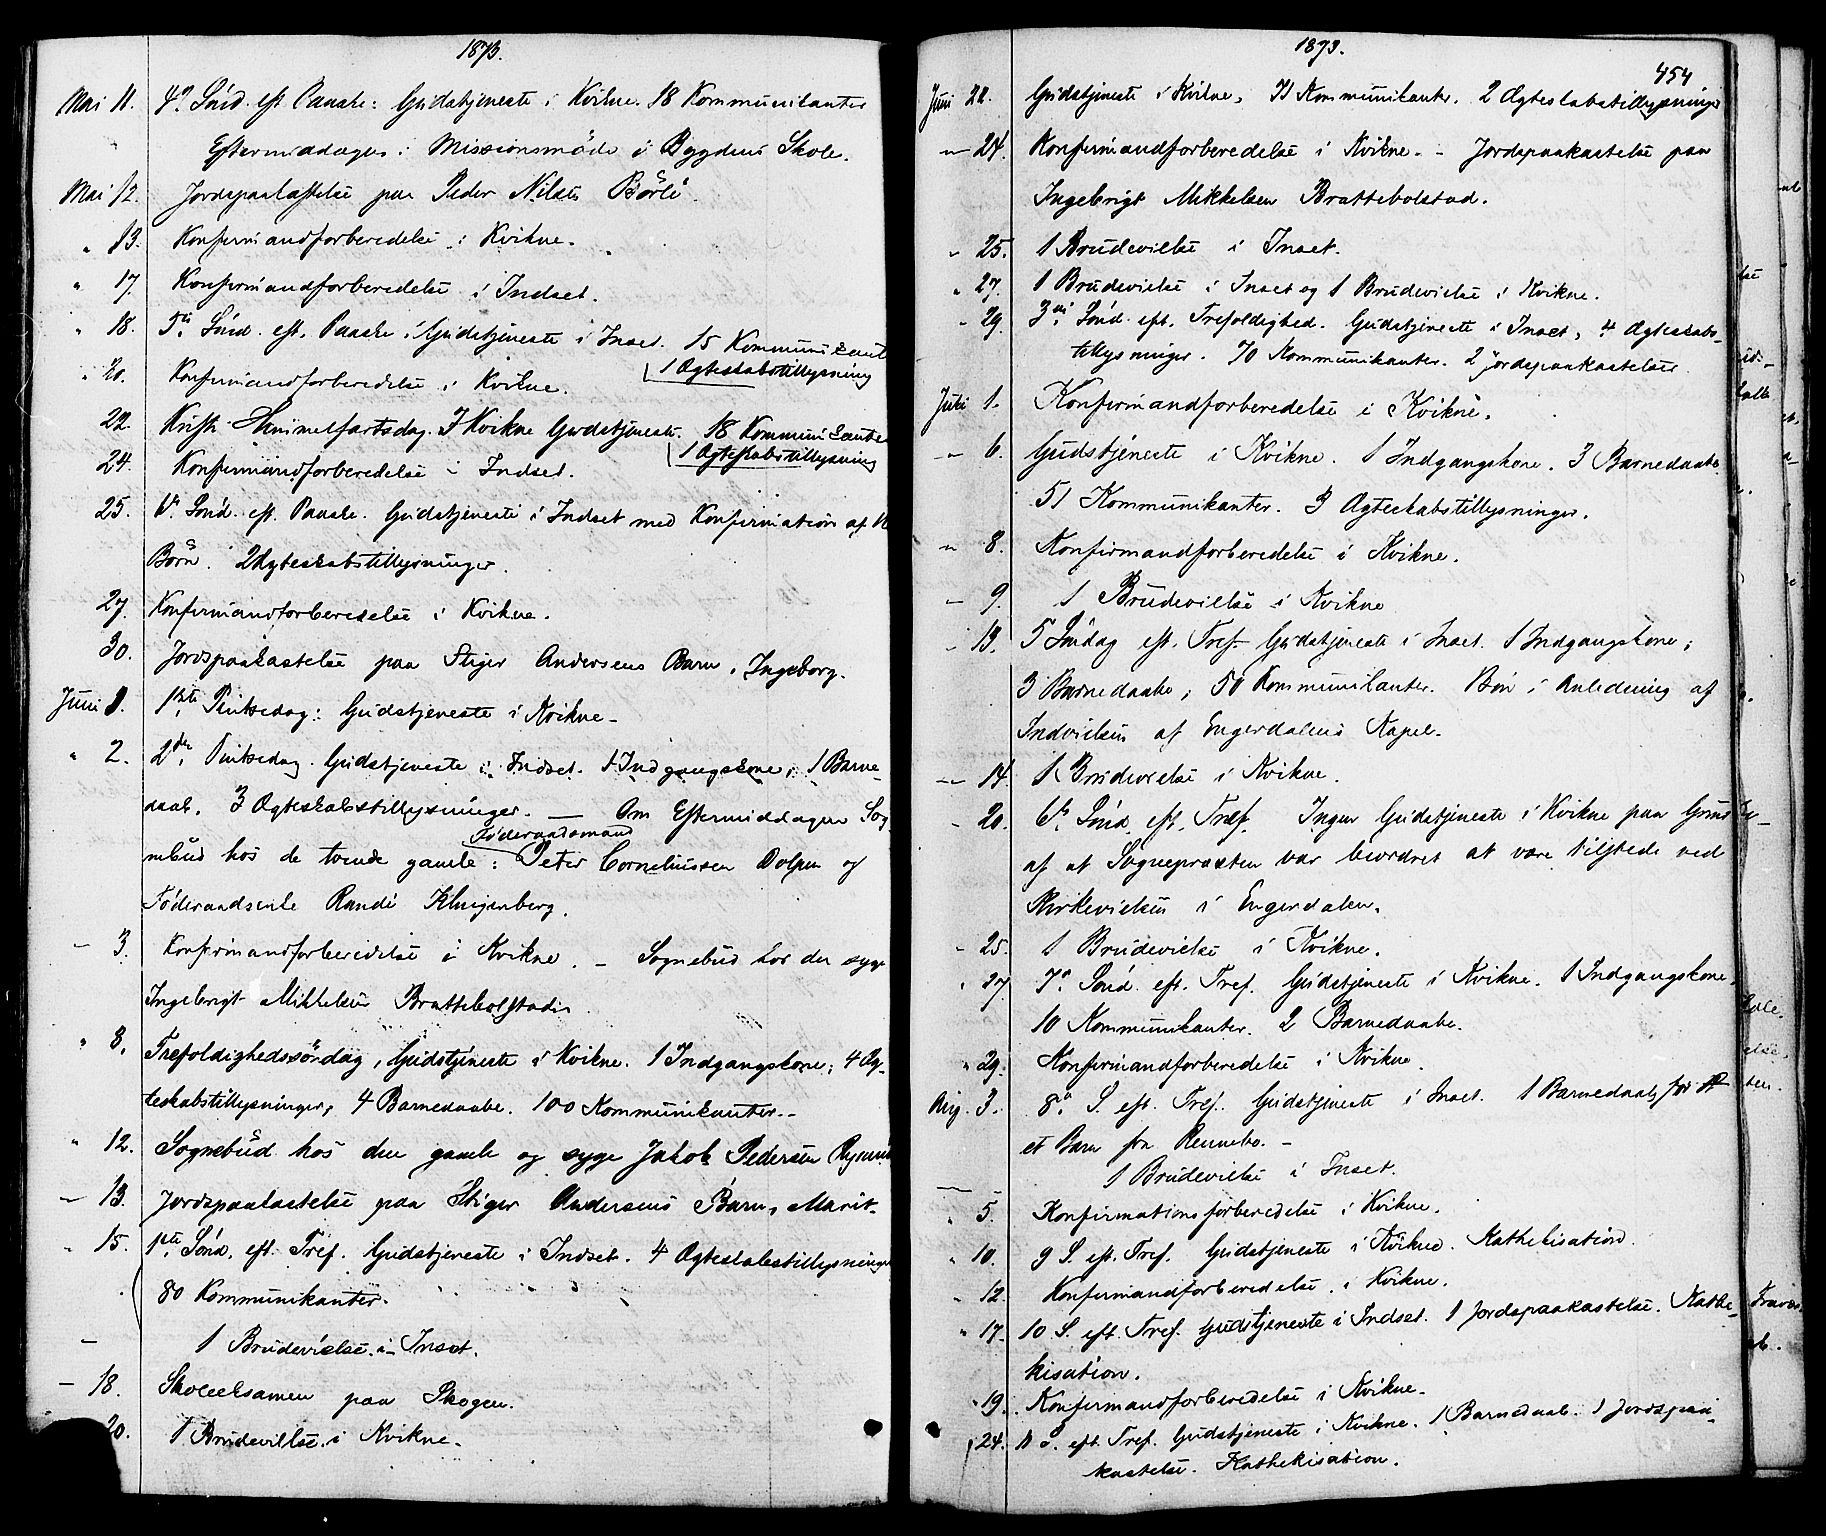 1873.
Mai 11. 4de Sönd. eft. Paaske: Gudstjeneste i Kvikne. 18 Kommunikanter
Eftermiddagen: Missionsmöde i Bygdens Skole.
Mai 12. Jordspaakastelse paa Peder Nilsen Börli.
" 13. Konfirmandforberedelse i Kvikne.
" 17. Konfirmandforberedelse i Indset.
" 18. 5te Sönd. eft. Paaske. Gudstjeneste i Inset. 15 Kommunikant
1 Ægteskabstillysning
" 20. Konfirmandforberedelse i Kvikne.
22. Kristi Himmelfartsdag. I Kvikne Gudstjeneste. 18 Kommunikanter
1 Ægteskabstillysning
24. Konfirmandforberedelse i Indset.
25. 6te Sönd. eft. Paaske. Gudstjeneste i Indset med Konfirmation af
Börn. 2 Ægteskabstillysninger.
27. Konfirmandforberedelse i Kvikne.
30. Jordspaakastelse paa Stiger Andersens Barn, Ingeborg.
Juni 1. 1ste Pintsedag: Gudstjeneste i Kvikne.
" 2. 2den Pintsedag. Gudstjeneste i Indset. 1 Indgangskone, 1 Barne-
daab. 3 Ægteskabstillysninger. — Om Eftermiddagen Sog-
Föderaadsmand
nebud hos de tvende gamle: Peter Corneliussen Dolpen og
Föderaadsenke Randi Klingenberg.
— 3. Konfirmandforberedelse i Kvikne. — Sognebud hos den syge
Ingebrigt Mikkelsen Brattebolstad.
" 8. Trefoldighedssöndag, Gudstjeneste i Kvikne. 1 Indgangskone; 4 Æg-
teskabstillysninger, 4 Barnedaabe. 100 Kommunikanter.
" 12. Sognebud hos den gamle og syge Jakob Pedersen
— 13. Jordspaakastelse paa Stiger Andersens Barn, Marit.
" 15. 1ste Sönd. eft. Tref. Gudstjeneste i Indset. 4 Ægteskabstillysninger
80 Kommunikanter.
— 1 Brudevielse i Inset.
— 18. Skoleeksamen paa Skogen.
20. 1 Brudevielse i Kvikne.
1873.
454
Juni 22. Gudstjeneste i Kvikne, Kommunikanter. 2 Ægteskabstillysninger
— 24. Konfirmandforberedelse i Kvikne. — Jordspaakastelse paa
Ingebrigt Mikkelsen Brattebolstad.
" 25. 1 Brudevielse i Inset.
" 27. 1 Brudevielse i Inset og 1 Brudevielse i Kvikne.
" 29. 3die Sönd. eft. Trefoldighed. Gudstjeneste i Inset, 4 Ægteskabs-
tillysninger. 70 Kommunikanter. 2 Jordspaakastelser.
Juli 1. Konfirmandforberedelse i Kvikne.
— 6. Gudstjeneste i Kvikne. 1 Indgangskone. 3 Barnedaabe
51 Kommunikanter. 3 Ægteskabstillysninger.
" 8. Konfirmandforberedelse i Kvikne.
— 9. 1 Brudevielse i Kvikne
— 13. 5 Söndag eft. Tref. Gudstjeneste i Inset. 1 Indgangskone;
3 Barnedaabe; 50 Kommunikanter. Bön i Anledning af
Indvielsen af Engerdalens Kapel.
— 14. 1 Brudevielse i Kvikne.
— 20. 6te Sönd. eft. Tref. Ingen Gudstjeneste i Kvikne paa Grund
af at Sognepræsten var beordret at være tilstede ved
Kirkevielsen i Engerdalen.
" 25. 1 Brudevielse i Kvikne.
" 27. 7de Sönd. eft. Tref. Gudstjeneste i Kvikne. 1 Indgangskone,
10 Kommunikanter. 2 Barnedaabe.
" 29. Konfirmandforberedelse i Kvikne.
Aug. 3. 8de S. eft. Tref. Gudstjeneste i Inset. 1 Barnedaab, for
et Barn fra Rennebo. —
1 Brudevielse i Inset.
" 5. Konfirmationsforberedelse i Kvikne.
" 10. 9 S. eft. Tref. Gudstjeneste i Kvikne. Kathekisation.
" 12. Konfirmandforberedelse i Kvikne.
" 17. 10 S. eft. Tref. Gudstjeneste i Indset. 1 Jordspaakastelse. Kathe-
kisation.
" 19. Konfirmandforberedelse i Kvikne.
" 24. 11 S. eft. Tref. Gudstjeneste i Kvikne. 1 Barnedaab. 1 Jordspaa-
kastelse. Kathekisation.